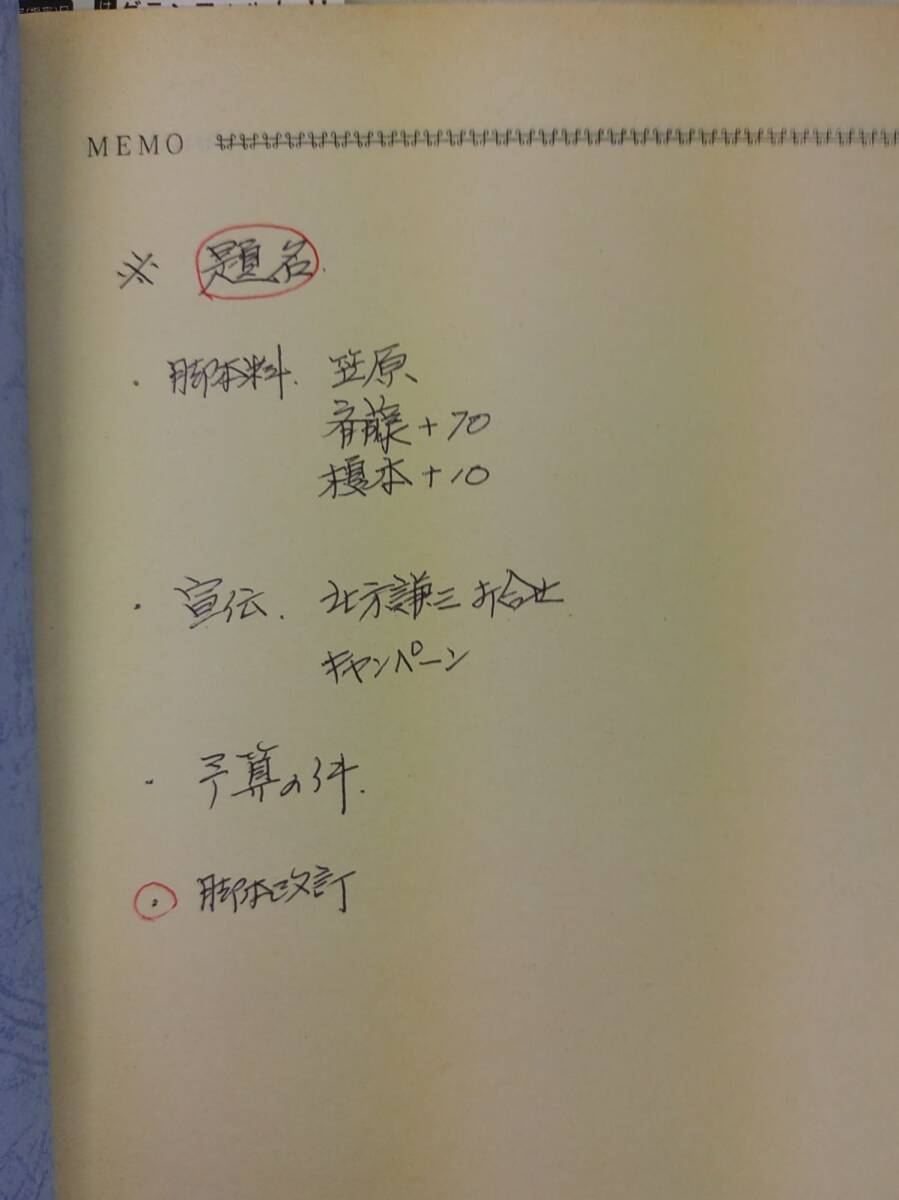 MEMO
※ 題名.
・脚本料. 笠原、
斉藤+70
榎本+10
・宣伝. 北方謙三 打合せ
キャンペーン
・予算の件.
・脚本改訂